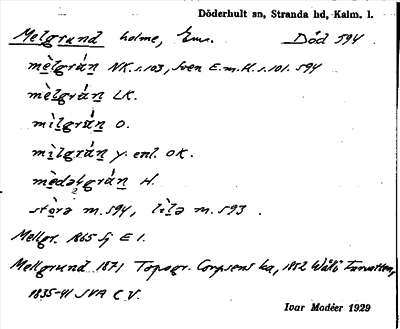 Döderhult sn, Stranda hd, Kalm. l.
Melgrund holme, Död 594
mèlgrán NK. s. 103, Sven E. m. K. s. 101. 594
mèlgrán LK.
mìlgrán O.
mìlgrán y. enl. OK.
mèdəlgrán H.
stòrə m. 594, lìlə m. 593.
Mellgr. R65 Sj E 1.
Mellgrund 1871 Topogr. Corpsens ka, 1852
1835-41 SVA C. V.
Ivar Modéer 1929